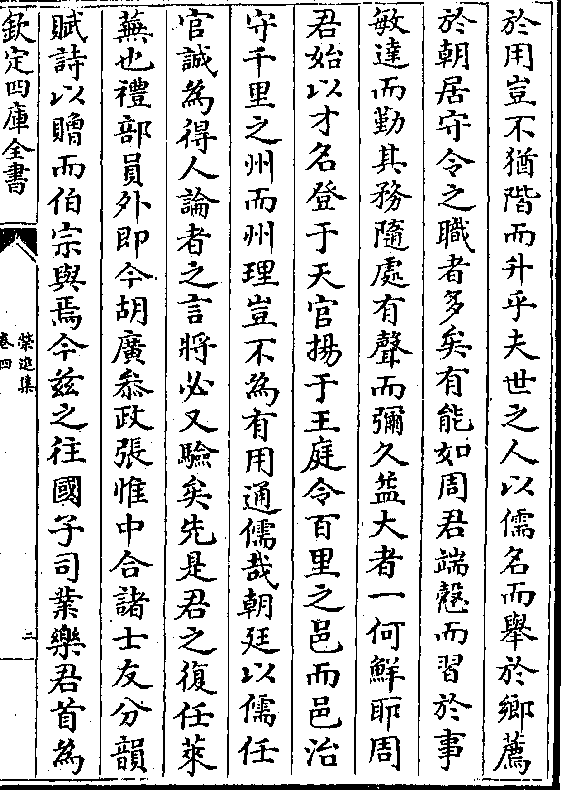 於用豈不猶階而升乎夫世之人以儒名而舉於鄉薦
於朝居守令之職者多矣有能如周君端慤而習於事
敏達而勤其務隨處有聲而彌久益大者一何鮮耶周
君始以才名登于天官揚于王庭令百里之邑而邑治
守千里之州而州理豈不為有用通儒哉朝廷以儒任
官誠為得人論者之言將必又驗矣先是君之復任萊
蕪也禮部員外即今胡廣叅政張惟中合諸士友分韻
賦詩以贈而伯宗與焉今兹之往國子司業樂君首為
欽定四庫全書
榮進集
卷四
二